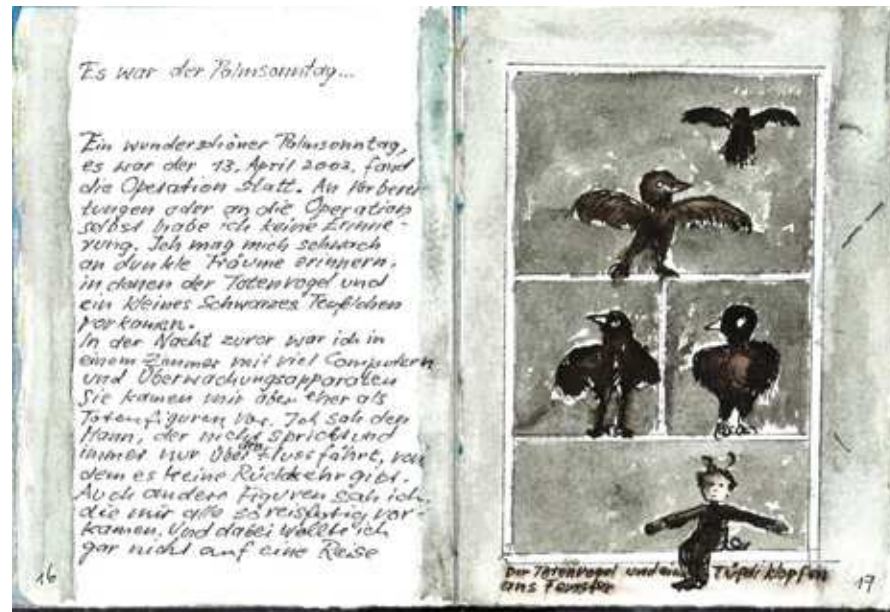 Es war der Palmsonntag...
Ein wunderschöner Palmsonntag,
es war der 13. April 2003, fand
die Operation statt. An Vorberei-
tungen oder an die Operation
selbst habe ich keine Erinne-
rung. Ich mag mich schwach
an dunkle Träume erinnern,
in denen der Totenvogel und
ein kleines schwarzes Teufelchen
vorkamen.
In der Nacht zuvor war ich in
einem Zimmer mit viel Computern
und Überwachungsapparaten
Sie kamen mir aber eher als
Totenfiguren vor. Ich sah den
Mann, der nicht spricht und
immer nur über den Fluss fährt, von
dem es keine Rückkehr gibt.
Auch andere Figuren sah ich,
die mir alle so reisfertig vor-
kamen. Und dabei wollte ich
gar nicht auf eine Reise
16
Der Totenvogel und ein Tüfeli klopfen
ans Fenster
17